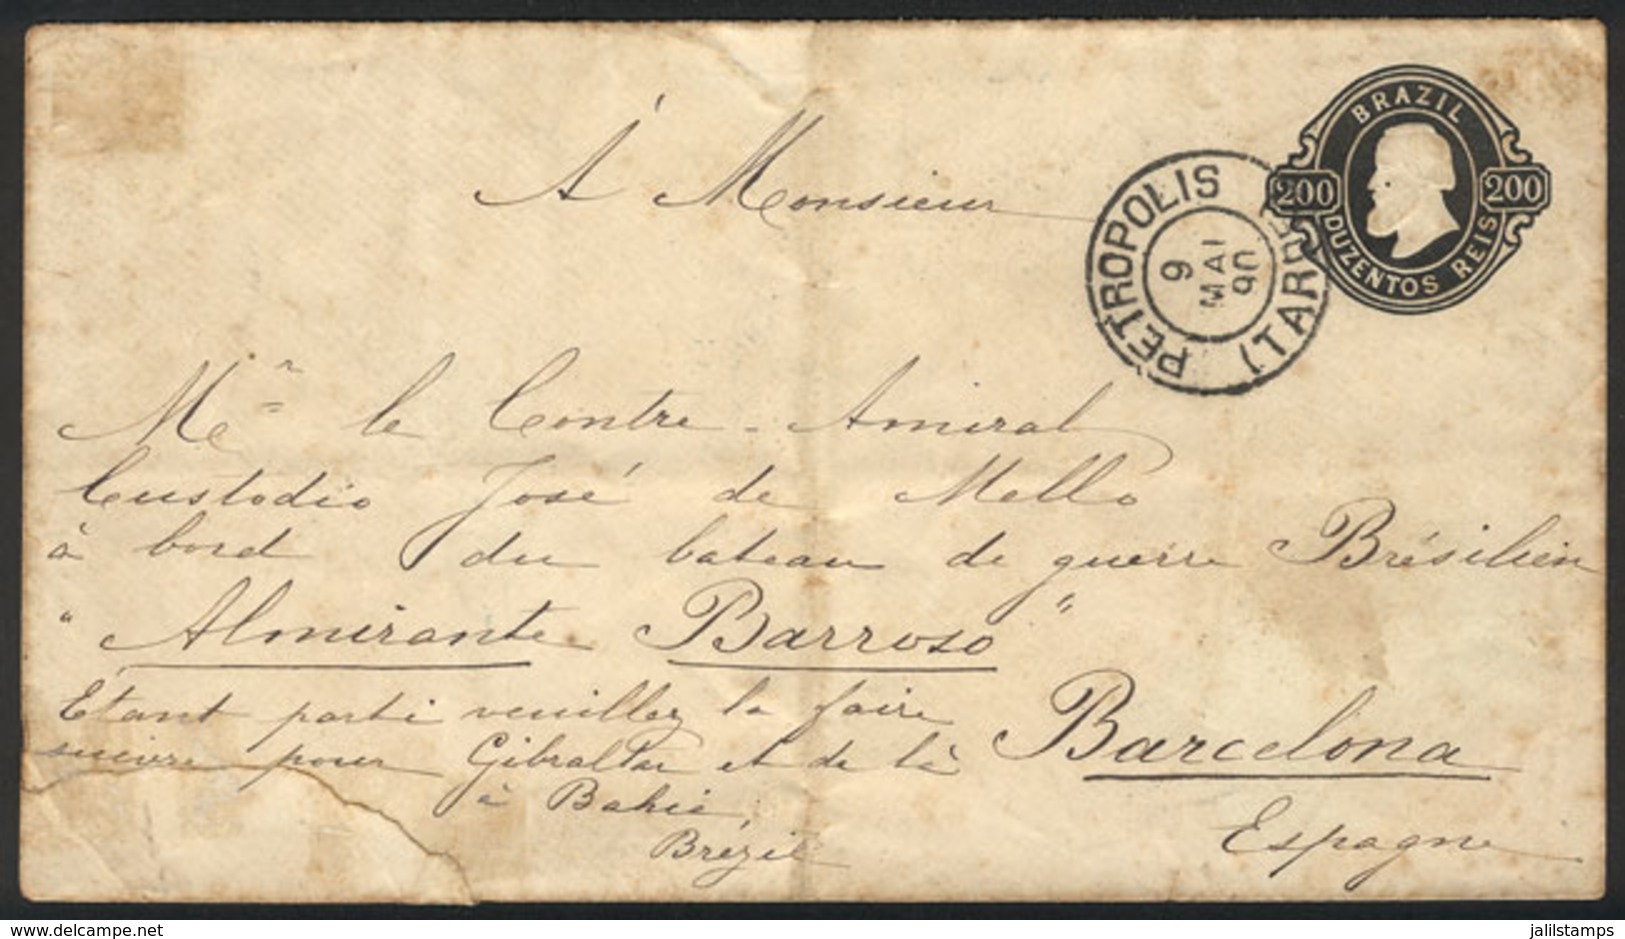 BRAZIL
200 200
DUZENTOS REIS
PETROPOLIS
9
MAI
90
(TARDE)
À Monsieur
Mr le Contre-Amiral
Custodio José de Mello
à bord du bateau de guerre Brésilien
"Almirante Barroso"
Barcelona
Espagne
Étant parti veuillez la faire
suivre pour Gibraltar et de là
à Bahia,
Brézil
delcampe.net
jalilstamps